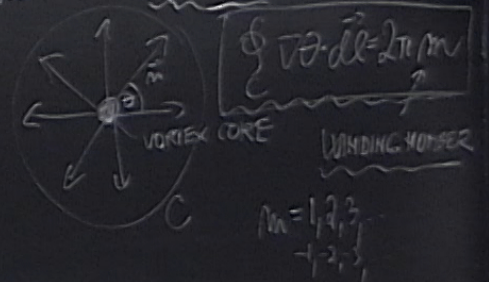 ∮_C ∇θ·dl⃗ = 2π m
m⃗
θ
VORTEX CORE
WINDING NUMBER
C
m = 1, 2, 3, ...
-1, -2, -3,